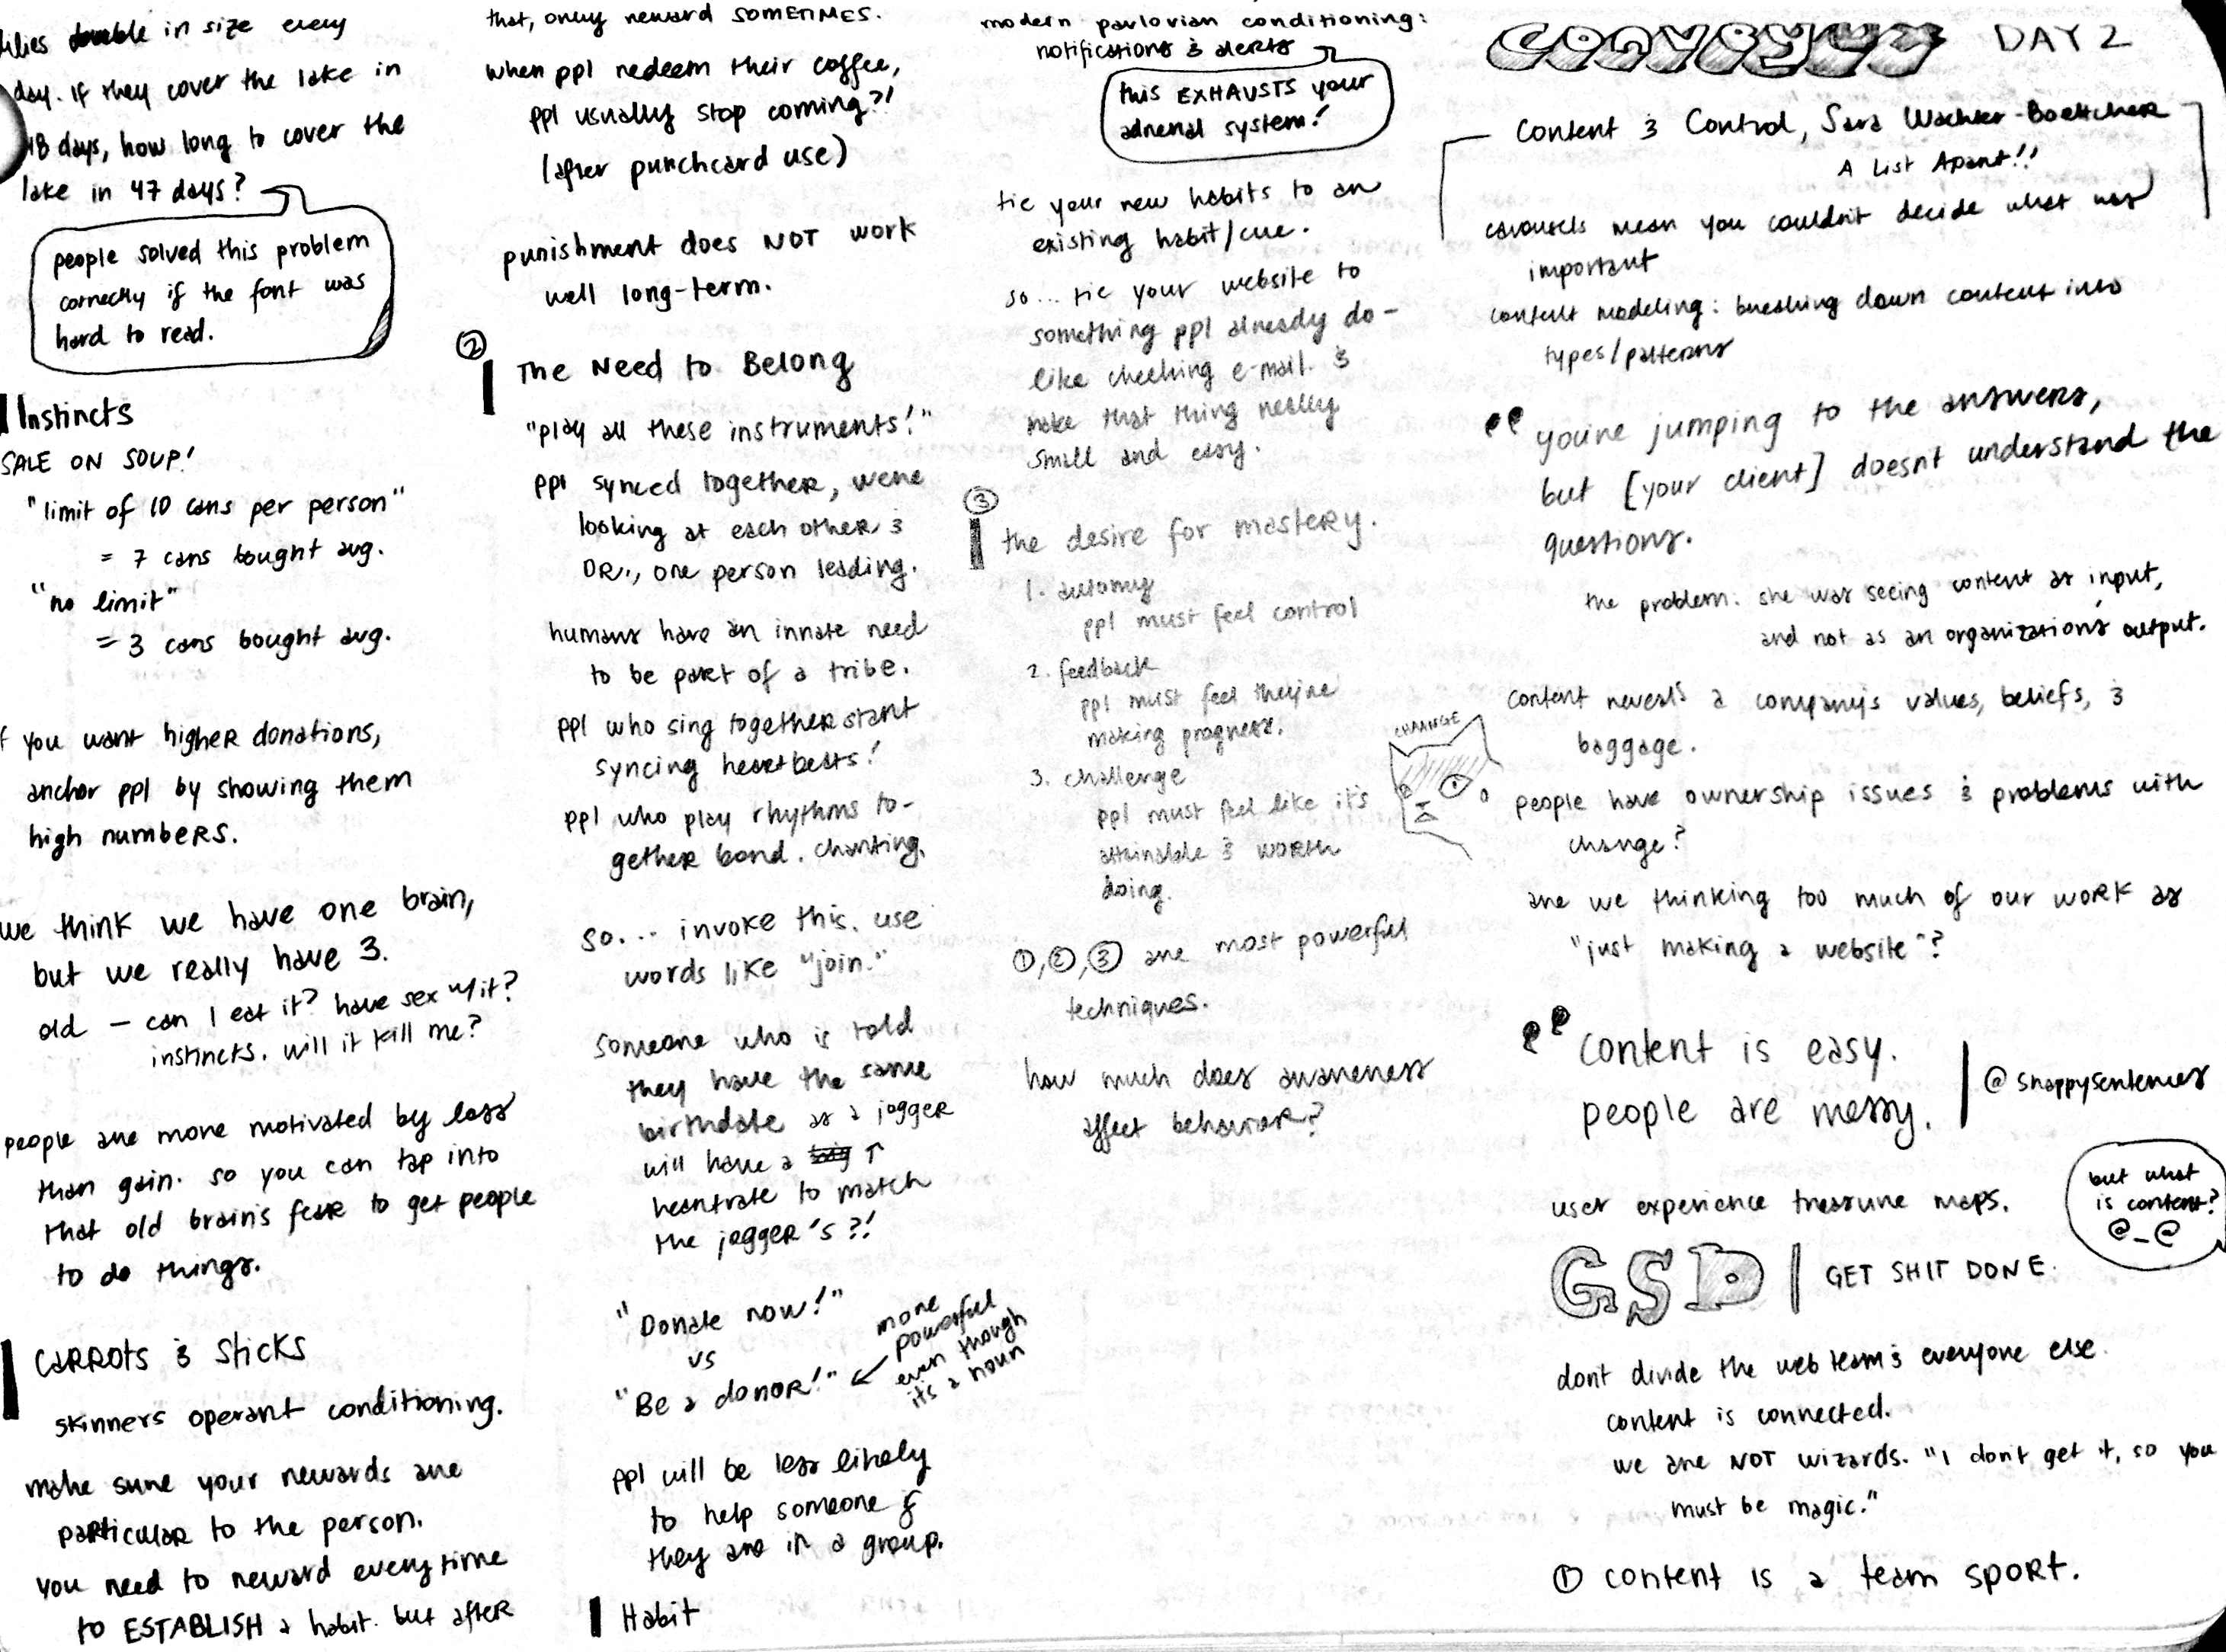 lilies double in size every
day. If they cover the lake in
48 days, how long to cover the
lake in 47 days?
people solved this problem
correctly if the font was
hard to read.
Instincts
SALE ON SOUP!
"limit of 10 cans per person"
= 7 cans bought avg.
"no limit"
= 3 cans bought avg.
f you want higher donations,
anchor ppl by showing them
high numbers.
we think we have one brain,
but we really have 3.
old – can I eat it? have sex w/it?
instincts. will it kill me?
people are more motivated by loss
than gain. so you can tap into
that old brain's fear to get people
to do things.
CARROTS & Sticks
skinners operant conditioning.
make sure your rewards are
particular to the person.
you need to reward everytime
to ESTABLISH a habit. but after
that, only reward SOMETIMES.
when ppl redeem their coffee,
ppl usually stop coming?!
(after punchcard use)
punishment does NOT work
well long-term.
②
The Need to Belong
"play all these instruments!"
ppl synced together, were
looking at each other &
OR.., one person leading.
humans have an innate need
to be part of a tribe.
ppl who sing together start
syncing heartbeats!
ppl who play rhythms to-
gether bond. chanting.
so... invoke this. use
words like "join."
someone who is told
they have the same
birthdate as a jogger
will have a ↑
heartrate to match
the jogger's?!
"Donate now!"
vs
"Be a donor!" ←
more
powerful
even though
its a noun
ppl will be less likely
to help someone if
they are in a group.
Habit
modern pavlovian conditioning:
notifications & alerts
this EXHAUSTS your
adrenal system!
tie your new habits to an
existing habit/cue.
so... tie your website to
something ppl already do-
like checking e-mail. &
make that thing really
small and easy.
③
the desire for mastery.
1. autonomy
ppl must feel control
2. feedback
ppl must feel they're
making progress.
3. challenge
ppl must feel like it's
attainable & worth
doing.
CHANGE
①,②,③ are most powerful
techniques.
how much does awareness
affect behavior?
DAY 2
Content & Control, Sara Wachter-Boettcher
A List Apart!!
carousels mean you couldn't decide what was
important
content modeling: breaking down content into
types/patterns
" you're jumping to the answers,
but [your client] doesn't understand the
questions.
the problem: she was seeing content as input,
and not as an organization's output.
content reveals a company's values, beliefs, &
baggage.
people have ownership issues & problems with
change?
are we thinking too much of our work as
"just making a website"?
" content is easy.
people are messy.
@snappysentences
user experience treasure maps.
but what
is content?
@_@
GSD | GET SHIT DONE.
don't divide the web team & everyone else.
content is connected.
we are NOT wizards. "I don't get it, so you
must be magic."
① content is a team sport.